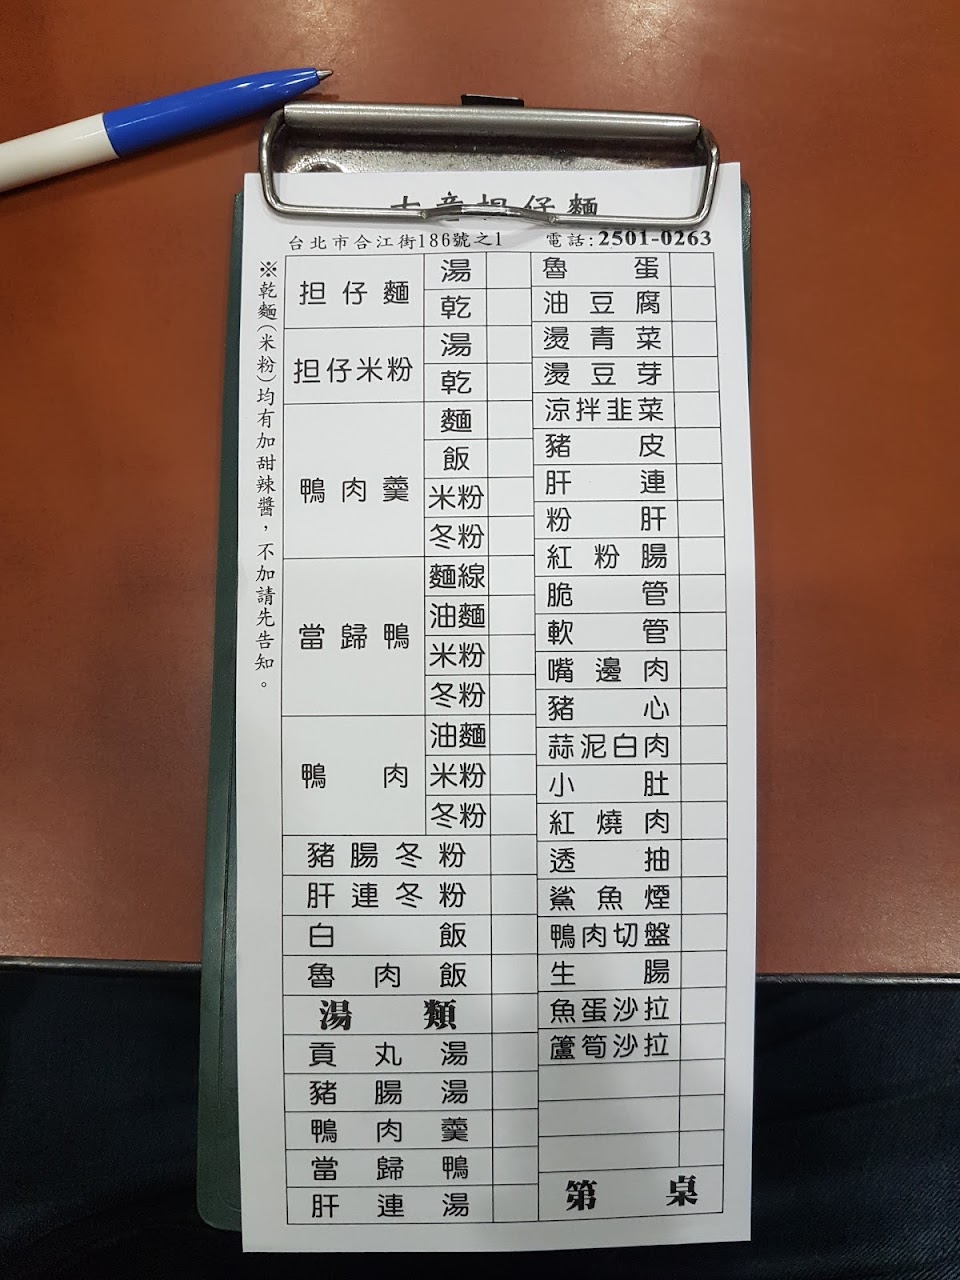 担仔麵
台北市合江街186號之1 電話:2501-0263
※乾麵(米粉)均有加甜辣醬，不加請先告知。
担仔麵
湯
乾
担仔米粉
湯
乾
鴨肉羹
麵
飯
米粉
冬粉
當歸鴨
麵線
油麵
米粉
冬粉
鴨肉
油麵
米粉
冬粉
豬腸冬粉
肝連冬粉
白飯
魯肉飯
湯類
貢丸湯
豬腸湯
鴨肉羹
當歸鴨
肝連湯
魯蛋
油豆腐
燙青菜
燙豆芽
涼拌韭菜
豬皮
肝連
粉肝
紅粉腸
脆管
軟管
嘴邊肉
豬心
蒜泥白肉
小肚
紅燒肉
透抽
鯊魚煙
鴨肉切盤
生腸
魚蛋沙拉
蘆筍沙拉
第桌